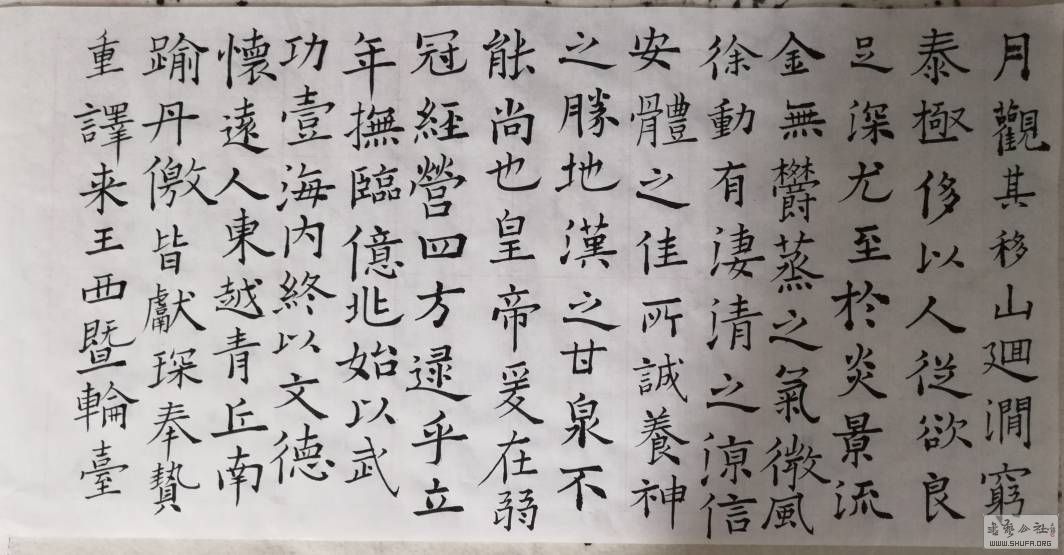 月觀其移山廻澗窮
泰極侈以人從欲良
足深尤至於炎景流
金無鬱蒸之氣微風
徐動有淒清之涼信
安體之佳所誠養神
之勝地漢之甘泉不
能尚也皇帝爰在弱
冠經營四方逯乎立
年撫臨億兆始以武
功壹海內終以文德
懷遠人東越青丘南
踰丹徼皆獻琛奉贄
重譯来王西暨輪臺
WWW.SHUFA.ORG